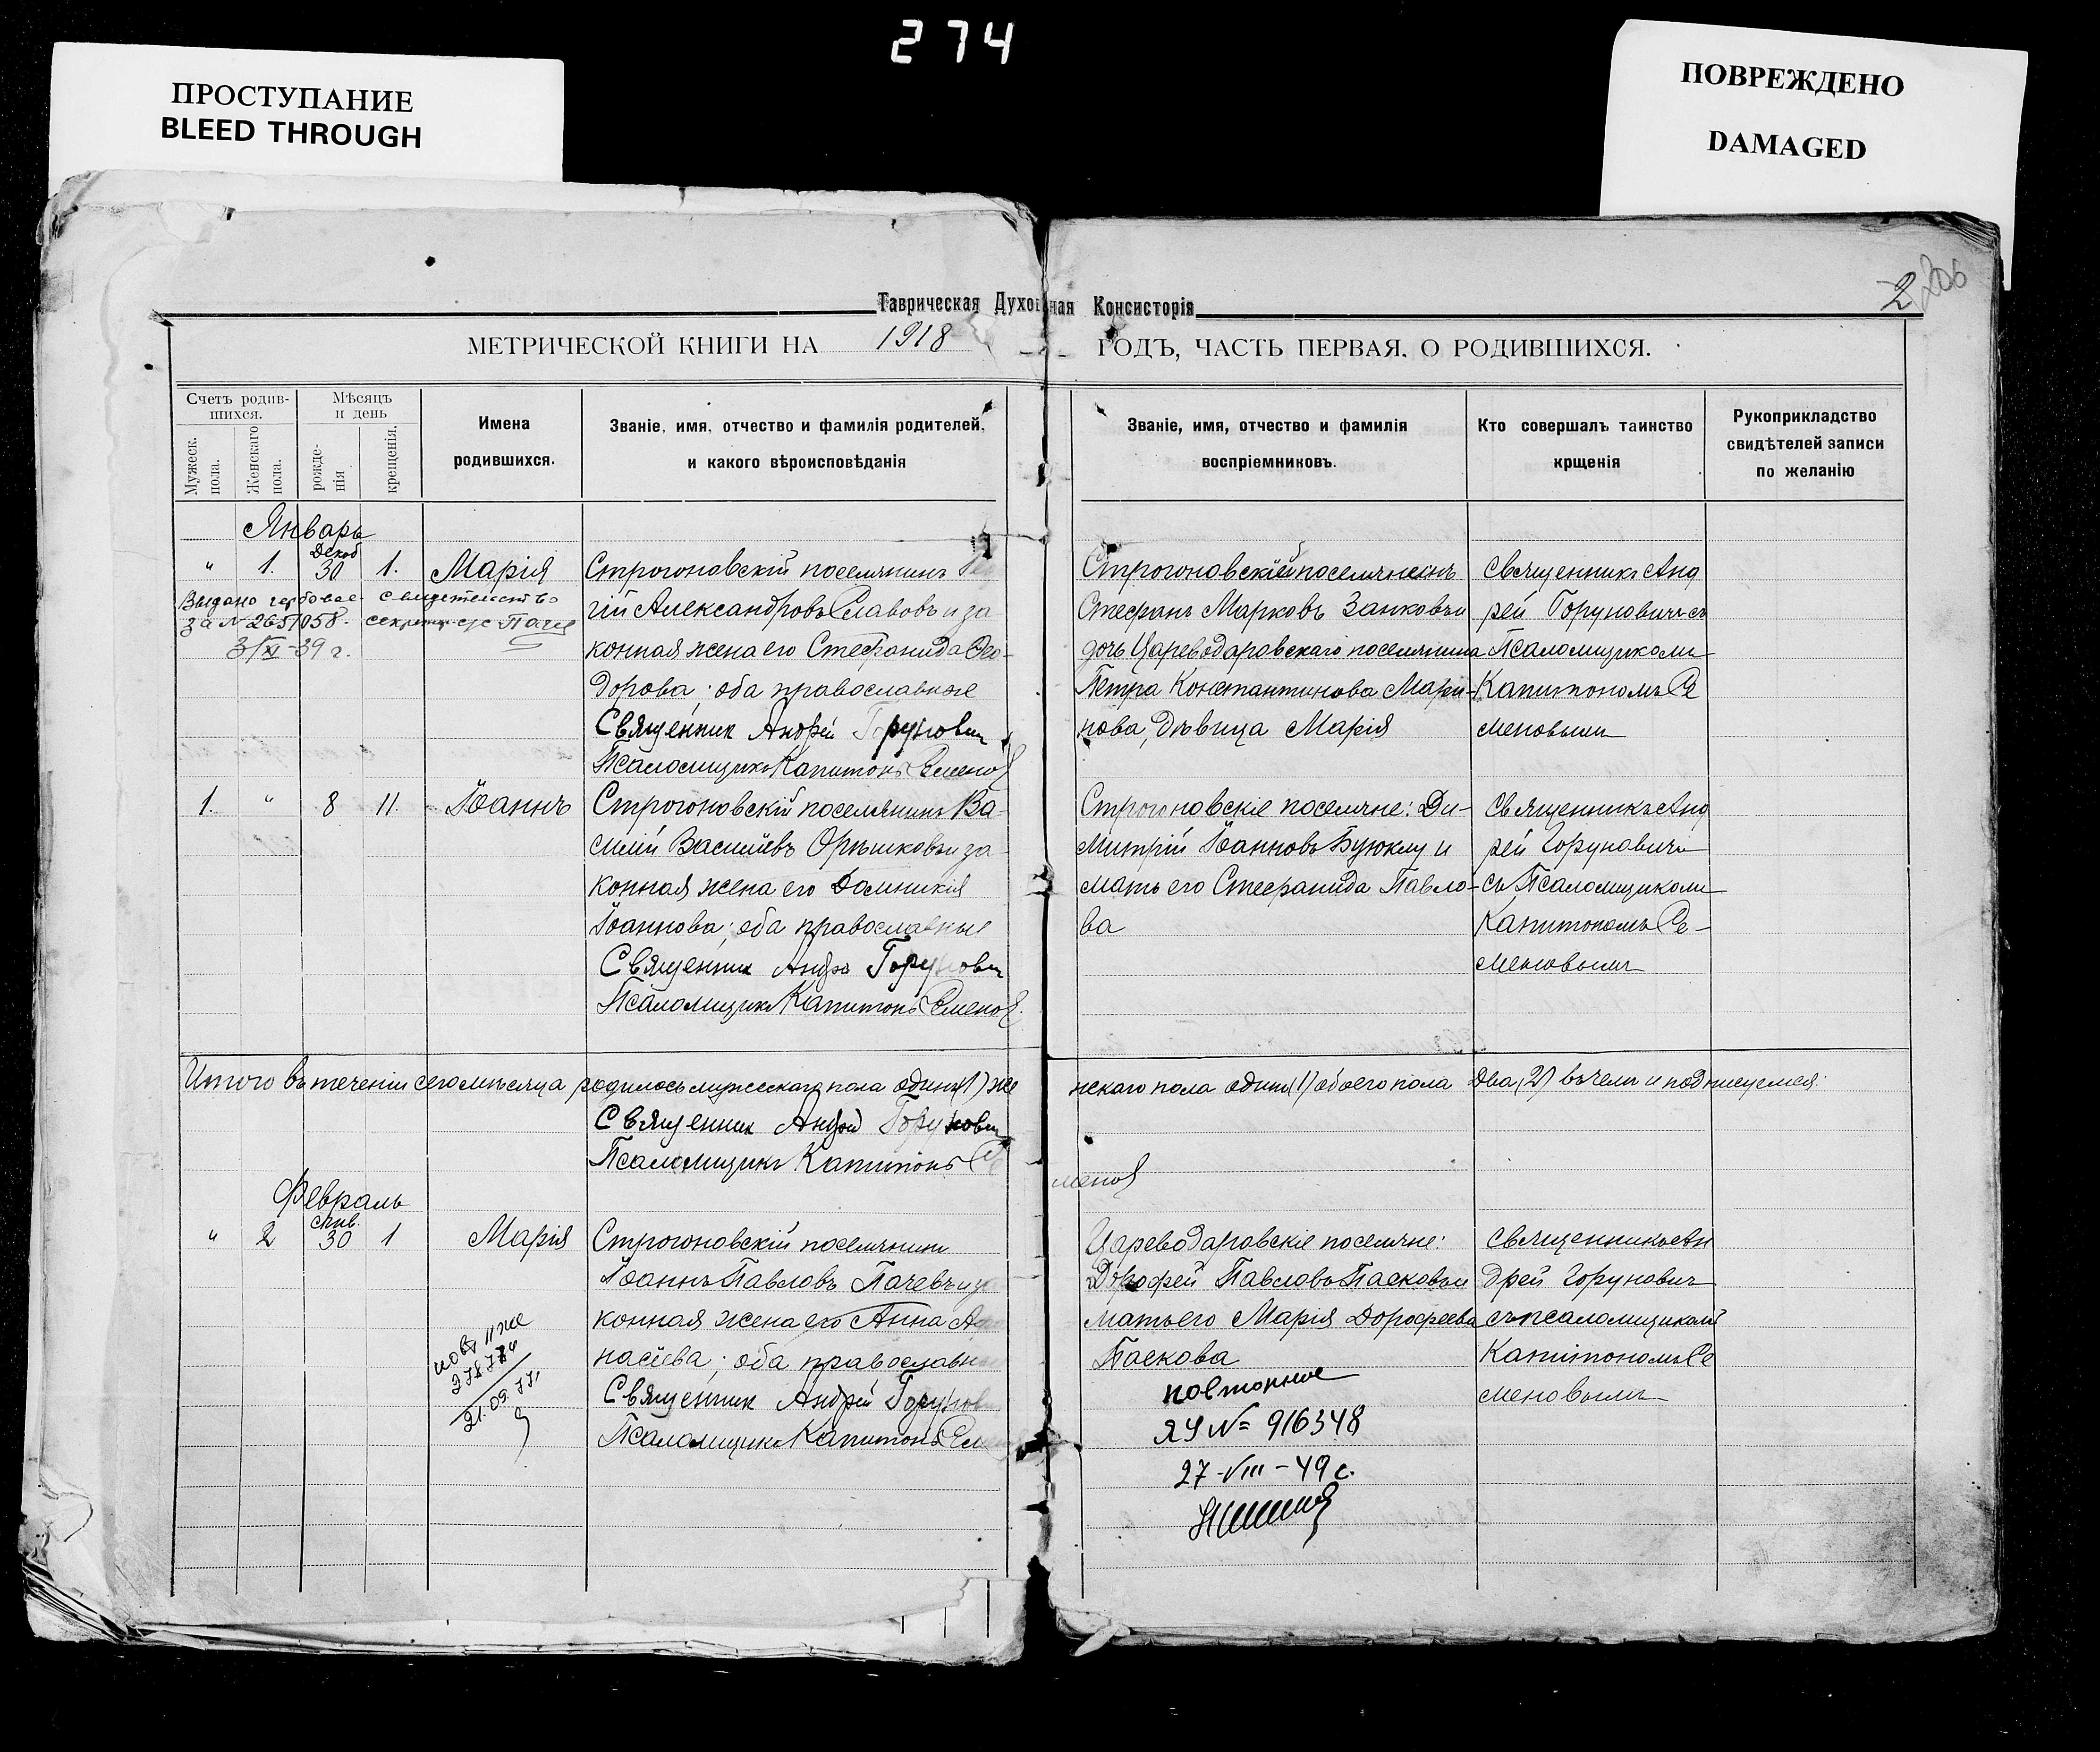 274
ПРОСТУПАНИЕ
BLEED THROUGH
ПОВРЕЖДЕНО
DAMAGED
2 206
Таврическая Духовная Консисторія
МЕТРИЧЕСКОЙ КНИГИ НА 1918 ГОДЪ, ЧАСТЬ ПЕРВАЯ. О РОДИВШИХСЯ.
Счетъ родив-
шихся.
Мужеск.
пола.
Женскаго
пола.
Мѣсяцъ
и день
рожде-
нія
крещенія.
Имена
родившихся.
Званіе, имя, отчество и фамилія родителей,
и какого вѣроисповѣданія
Званіе, имя, отчество и фамилія
воспріемниковъ.
Кто совершалъ таинство
крщенія
Рукоприкладство
свидѣтелей записи
по желанію
Январь
" 1. Декаб 30 1. Марія
Выдано гербовое свидетельство
за № 2651058.
3/XI-39 г.
Строгоновскій поселянинъ
гій Александровъ Славовъ и за
конная жена его Стефанида Ѳео-
дорова; оба православные
Священник Андрей Горунович
Псаломщикъ Капитонъ Семенов
Строгоновскій поселянинъ
Стефанъ Марковъ Занковъ и
дочь Цареводаровскаго поселянина
Петра Константинова Мари-
нова, дѣвица Марія
Священникъ Анд
рей Горуновичъ съ
Псаломщикомъ
Капитономъ Се
меновымъ
1. " 8 11. Іоаннъ
Строгоновскій поселянинъ Ва-
силій Васильевъ Орѣшковъ и за
конная жена его Домникія
Іоаннова; оба православные
Священник Андрей Горунович
Псаломщикъ Капитонъ Семенов.
Строгоновскіе поселяне: Ди-
митрій Іоанновъ Буюклу и
мать его Стефанида Павло-
ва
Священникъ Анд
рей Горуновичъ
съ Псаломщикомъ
Капитономъ Се-
меновымъ
Итого въ теченіи сего мѣсяца родилось мужескаго пола одинъ (1) же
нскаго пола одинъ (1) обоего пола два (2) въ чемъ и подписуемся:
Священник Андрей Горунович
Псаломщикъ Капитонъ Се
менов
Февраль
" 2 Янв. 30 1 Марія
Строгоновскій поселянинъ
Іоаннъ Павловъ Пачевъ и за
конная жена его Анна А
насіева; оба православные
Священник Андрей Горунович
Псаломщикъ Капитонъ Сем
21.05.77.
Цареводаровскіе поселяне:
Дорофей Павловъ Пасковъ и
мать его Марія Дорофеева
Паскова
Священникъ Ан
дрей Горунович
съ псаломщикомъ
Капитономъ Се
меновымъ
повторное
ЯЧ № 916348
27-VIII-49 г.